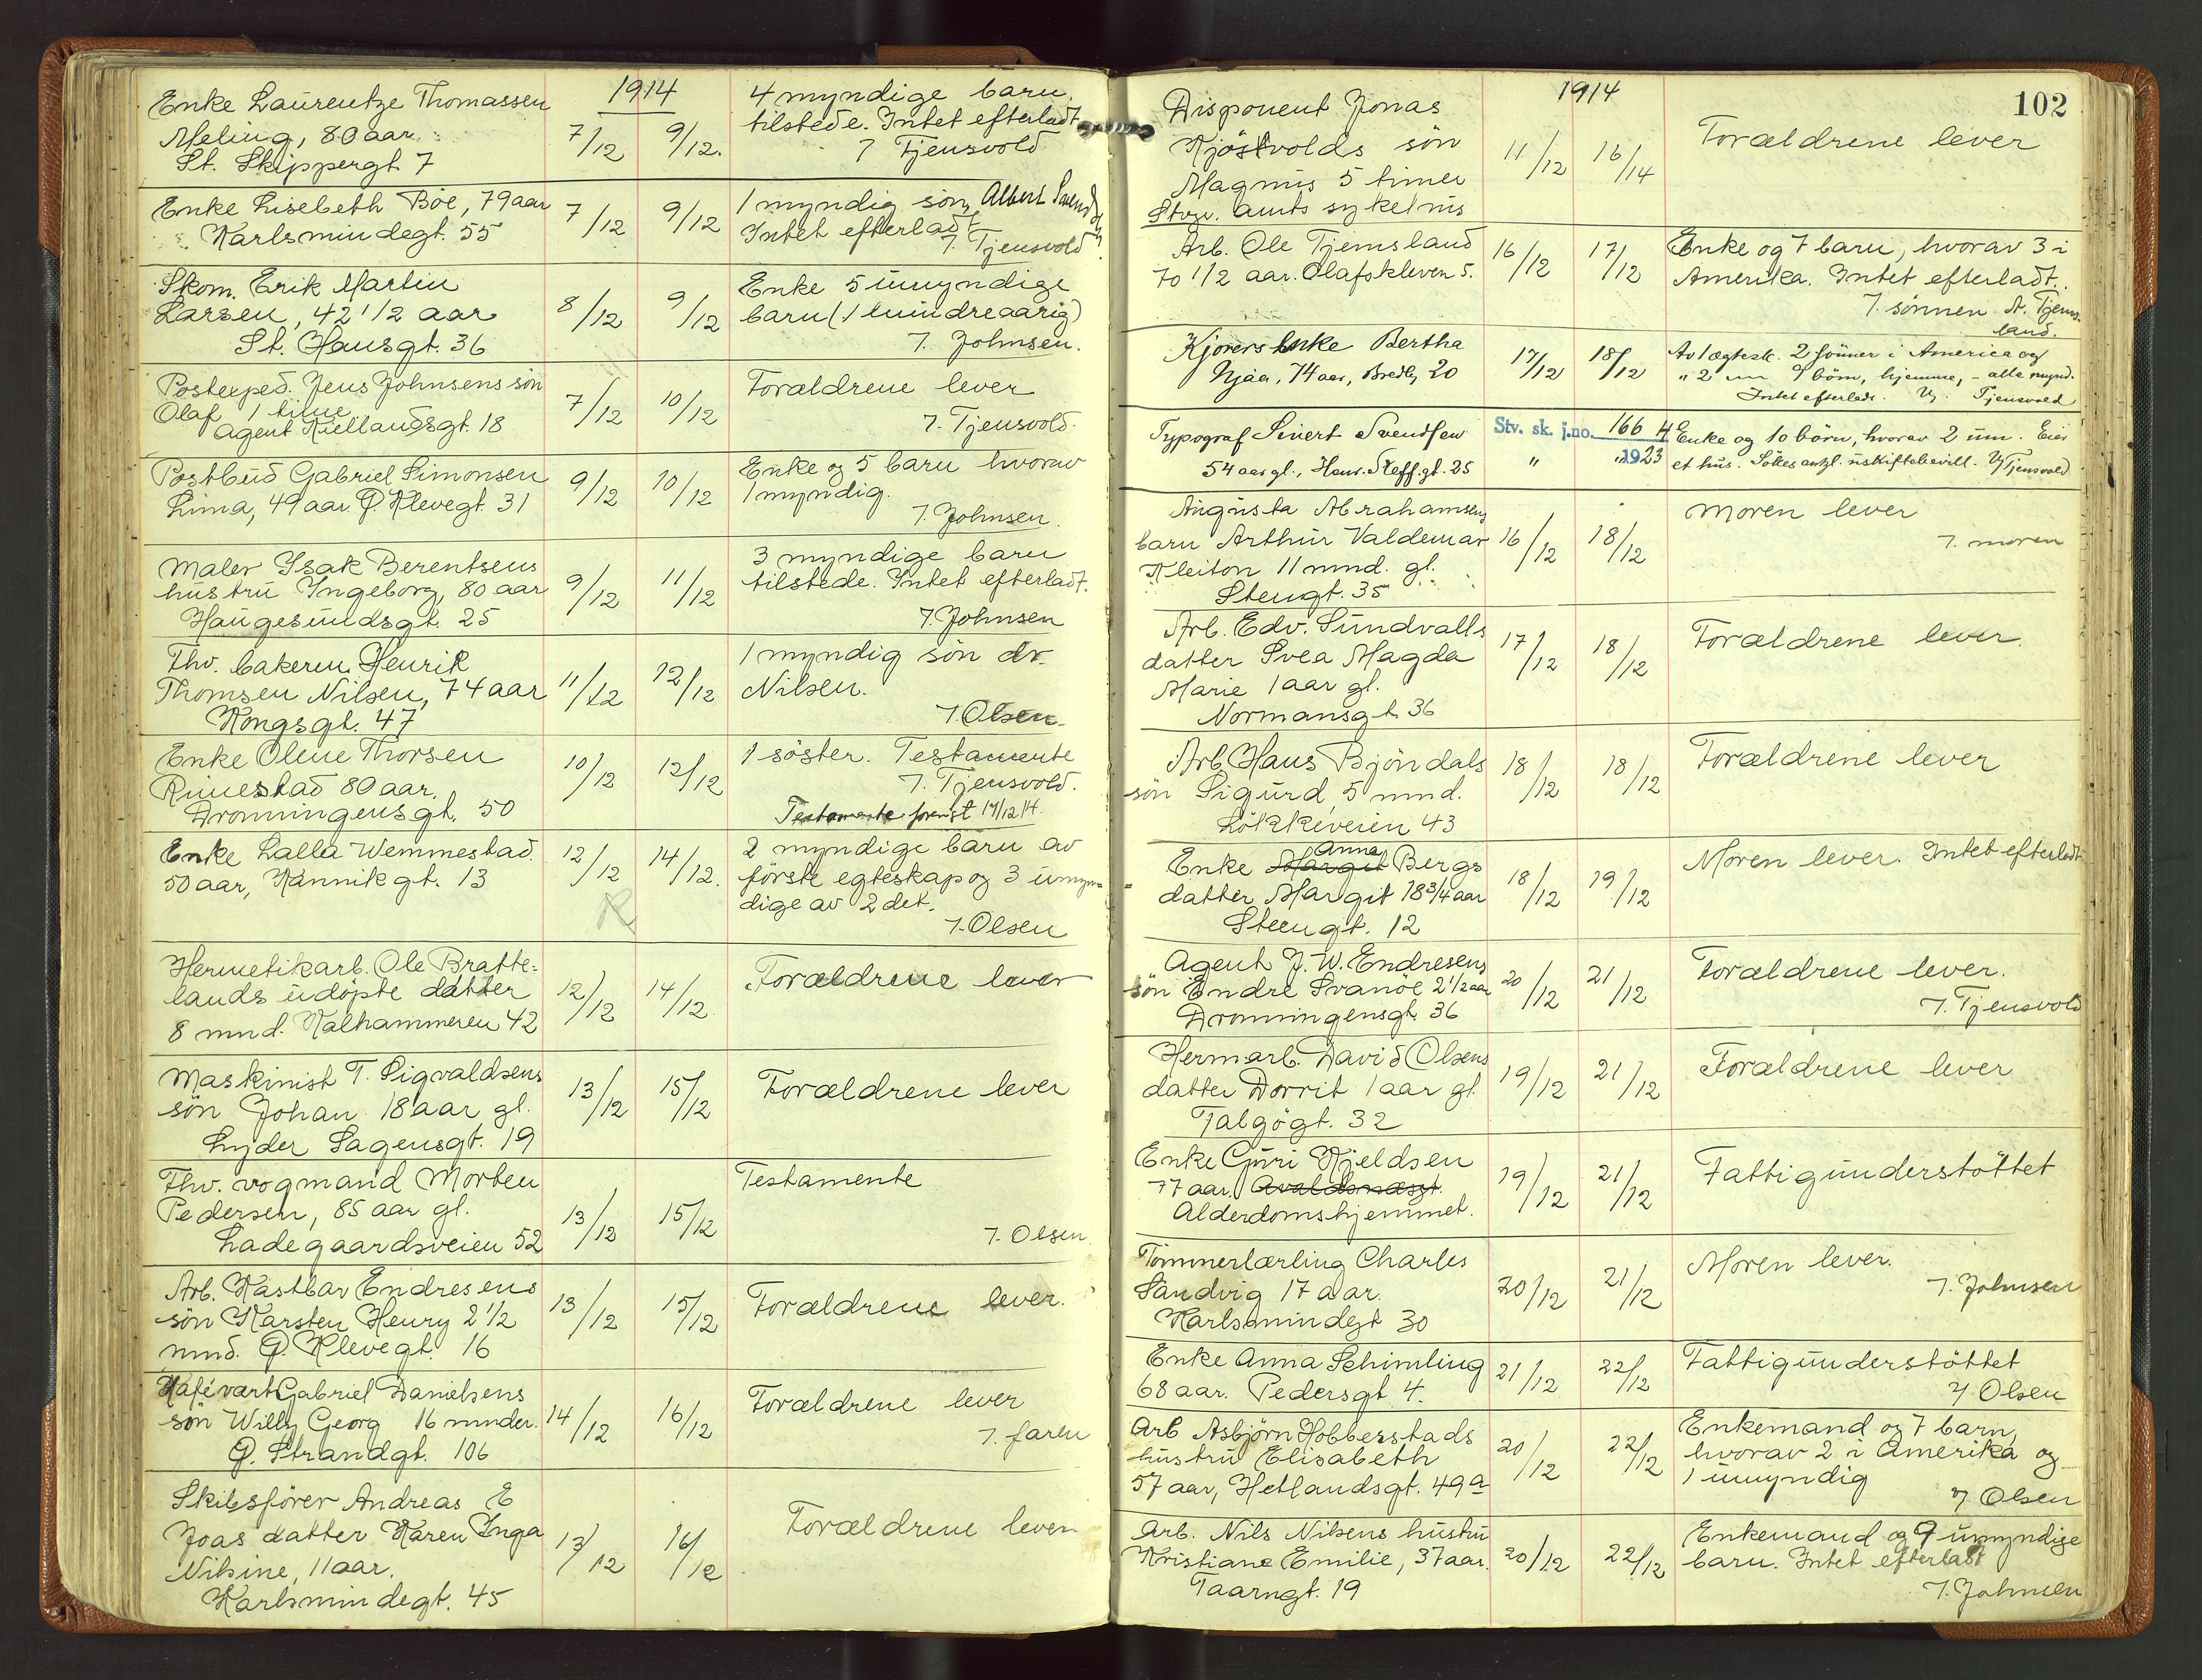 1914
Enke Laurentze Thomassen
Meling, 80 aar.
St. Skippergt. 7
7/12 9/12.
4 myndige barn
tilstede. Intet efterladt
7 Tjensvold
Enke Lisebeth Böe, 79 aar
Karlsmindegt. 55
7/12 9/12
1 myndig sön, Albert Svendsen
Intet efterladt
7. Tjensvold
Skom. Erik Martin
Larsen, 42 1/2 aar
St. Hansgt. 36
8/12 9/12
Enke 5 umyndige
barn (1 mindreaarig)
7. Johnsen.
Postexped. Jens Johnsens sön
Olaf 1 time
Agent Kiellandsgt. 18
7/12 10/12
Forældrene lever
7. Tjensvold.
Postbud Gabriel Simonsen
Lima, 49 aar. Ø. Klevegt. 31
9/12 10/12
Enke og 5 barn hvorav
1 myndig.
7. Johnsen.
Maler Isak Berentsens
hustru Ingeborg, 80 aar
Haugesundsgt. 25
9/12 11/12
3 myndige barn
tilstede. Intet efterladt.
7. Johnsen
Fhv. bakeren Henrik
Thomsen Nilsen, 74 aar
Kongsgt. 47
11/12 12/12
1 myndig sön dr.
Nilsen.
7. Olsen.
Enke Olene Thorsen
Rimestad 80 aar.
Dronningensgt. 50
10/12 12/12
1 söster. Testamente
7. Tjensvold.
Testamente forevist 14/12 14.
Enke Lalla Wemmestad.
50 aar, Kannikgt. 13
12/12 14/12.
R
2 myndige barn av
förste egteskap og 3 umyn-
dige av 2 det.
7. Olsen
Hermetikarb. Ole Bratte-
lands udöpte datter
8 mnd. Kalhammeren 42
12/12 14/12
Forældrene lever
Maskinist T. Sigvaldsens
sön Johan 18 aar gl.
Lyder Sagensgt. 19
13/12 15/12
Forældrene lever
Fhv. vogmand Morten
Pedersen, 85 aar gl.
Ladegaardsveien 52
13/12 15/12
Testamente
7. Olsen
Arb. Kastbar Endresens
sön Karsten Henry 2 1/2
mnd. Ø. Klevegt. 16
13/12 15/12
Forældrene lever.
Kafévært Gabriel Danielsens
sön Willy Georg 16 mnder.
Ø. Strandgt. 106
14/12 16/12
Forældrene lever
7. faren
Skibsförer Andreas E
Joas datter Karen Inga
Nilsine, 11 aar.
Karlsmindegt. 45
13/12 16/12
Forældrene lever
1914
102
Disponent Jonas
Kjöstvolds sön
Magnus 5 timer
Stvgr. amts sykehus
11/12 16/14
Forældrene lever
Arb. Ole Tjemsland
70 1/2 aar. Olafskleven 5.
16/12 17/12
Enke og 7 barn, hvorav 3 i
Amerika. Intet efterladt.
7. sönnen A. Tjems-
land.
Kjörers Enke Bertha
Njaa, 74 aar, Bredb, 20
17/12 18/12
Av 1 ægtesk. 2 sönner i America og
" 2 — 4 börn, hjemme, - alle mynd.
Intet efterladt. Tjensvold
Typograf Sivert Svendsen
54 aar gl., Hans Steff. gt. 25
Stv. sk. j.no. 166 4
" 1923
Enke og 10 börn, hvorav 2 um. Eier
et hus. Sökes anbf. uskiftebevill. Tjensvold
Augusta Abrahamsens
barn Arthur Valdemar
Kleiton 11 mnd. gl.
Stengt. 35
16/12 18/12
Moren lever
7. moren
Arb. Edv. Sundvalls
datter Svea Magda
Marie 1 aar gl.
Normansgt. 36
17/12 18/12
Forældrene lever.
Arb. Hans Bjöndals
sön Sigurd, 5 mnd.
Lökkeveien 43
18/12 18/12
Forældrene lever
Anna
Enke Margit Bergs
datter Margit 18 3/4 aar
Steengt. 12
18/12 19/12
Moren lever. Intet efterladt
Agent J. W. Endresens
sön Endre Svanöe 2 1/2 aar
Dronningensgt. 36
20/12 21/12
Forældrene lever.
7. Tjensvold
Hermarb. David Olsens
datter Dorrit 1 aar gl.
Talgögt. 32
19/12 21/12
Forældrene lever
Enke Guri Kjeldsen
77 aar. Avaldsnæsgt.
Alderdomshjemmet.
19/12 21/12
Fattigunderstöttet
Tömmerlærling Charles
Sandvig 17 aar.
Karlsmindegt 30
20/12 21/12
Moren lever.
7. Johnsen
Enke Anna Schimling
68 aar. Pedersgt 4.
21/12 22/12
Fattigunderstöttet
7 Olsen
Arb Asbjörn Hobberstads
hustru Elisabeth
57 aar, Hetlandsgt. 49a
20/12 22/12
Enkemand og 7 barn,
hvorav 2 i Amerika og
1 umyndig
7 Olsen
Arb. Nils Nilsens hustru
Kristiane Emilie, 37 aar.
Taarngt. 19
20/12 22/12
Enkemand og 9 umyndige
barn. Intet efterladt
7. Johnsen